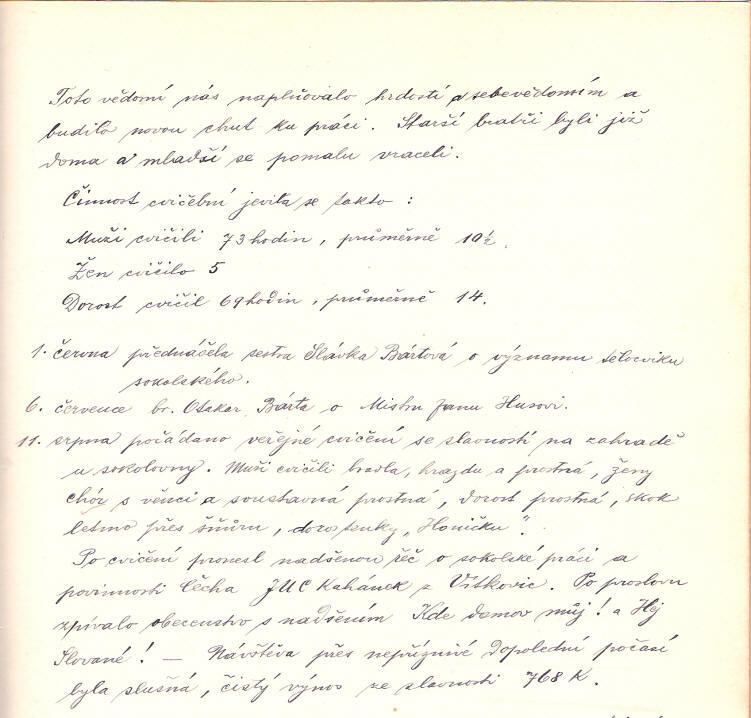 Toto vědomí nás naplňovalo hrdostí a sebevědomím a
budilo novou chuť ku práci. Starší bratři byli již
doma a mladší se pomalu vraceli.
Činnost cvičební jevila se takto :
Muži cvičili 73 hodin, průměrně 10½.
Žen cvičilo 5
Dorost cvičil 69 hodin, průměrně 14.
1. června přednášela sestra Slávka Bártová o významu tělocviku
sokolského.
6. července br. Otakar Bárta o Mistru Janu Husovi.
11. srpna pořádáno veřejné cvičení se slavností na zahradě
u sokolovny. Muži cvičili bradla, hrazdu a prostná, ženy
chór s věnci a soustavná prostná, dorost prostná, skok
letmo přes šňůru, dorostenky „Honičku“.
Po cvičení pronesl nadšenou řeč o sokolské práci a
povinnosti Čecha JUC Kahánek z Vítkovic. Po proslovu
zpívalo obecenstvo s nadšením Kde domov můj! a Hej
Slované! — Návštěva přes nepříznivé dopolední počasí
byla slušná, čistý výnos ze slavnosti 768 K.